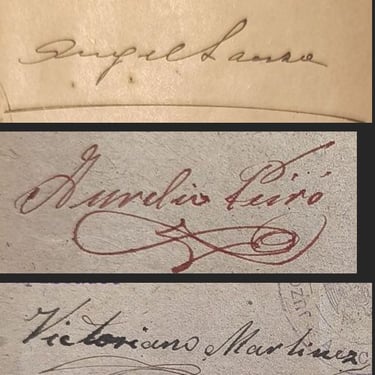 Angel Sanza
Aurelio Peiró
Victoriano Martinez